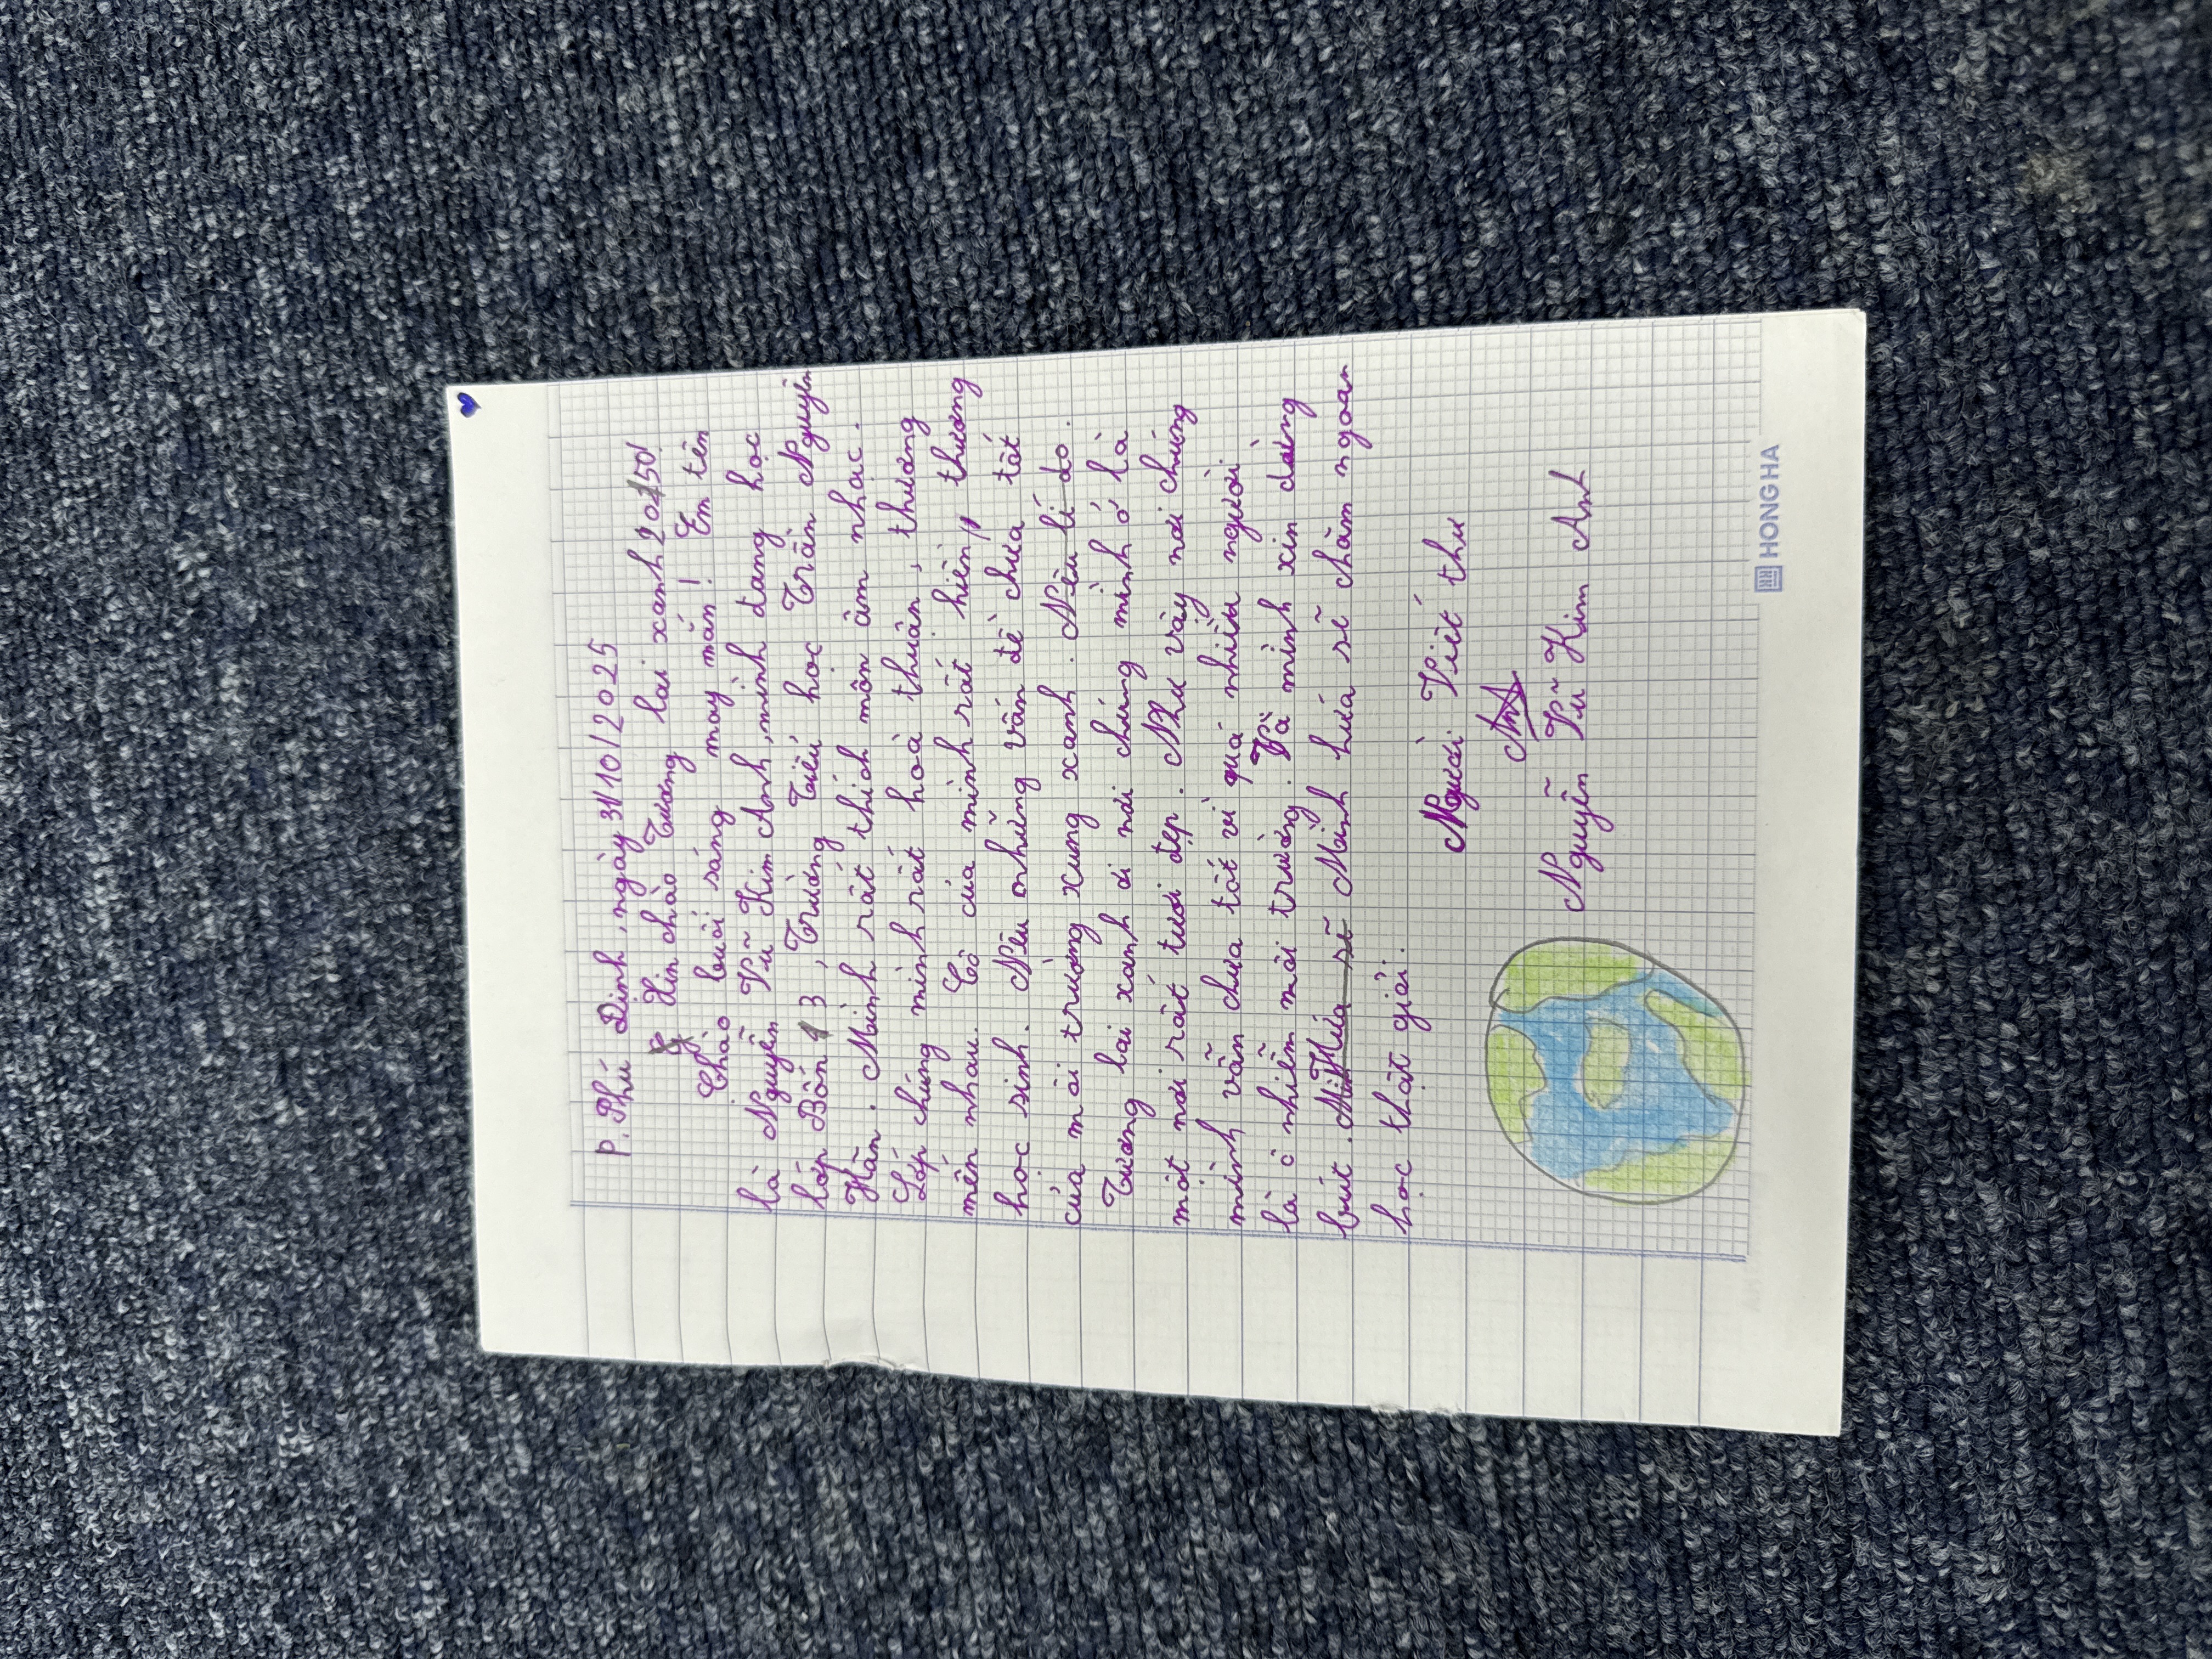 P. Phú Định, ngày 31/10/2025
Xin chào Tương lai xanh 2050!
Chào buổi sáng may mắn! Em tên
là Nguyễn Vũ Kim Anh, mình đang học
lớp Bốn 3, Trường Tiểu học Trần Nguyên
Hãn. Mình rất thích môn âm nhạc.
Lớp chúng mình rất hoà thuận, thương
mến nhau. Cô của mình rất hiền, thương
học sinh. Nêu những vấn đề chưa tốt
của môi trường xung xanh. Nêu lí do.
Tương lai xanh ơi nơi chúng mình ở là
một nơi rất tươi đẹp. Như vậy nơi chúng
mình vẫn chưa tốt vì quá nhiều người
là ô nhiễm môi trường. Và mình xin dừng
bút. Mình hứa sẽ chăm ngoan
học thật giỏi.
Người Viết thư
Anh
Nguyễn Vũ Kim Anh
HONG HA